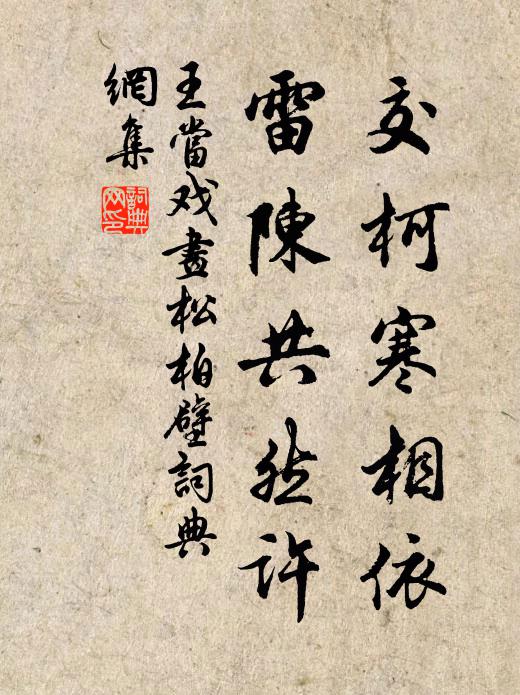 交柯寒相依
雷陳共然許
王當戏畫松柏壁詞典
網集
詞典網印